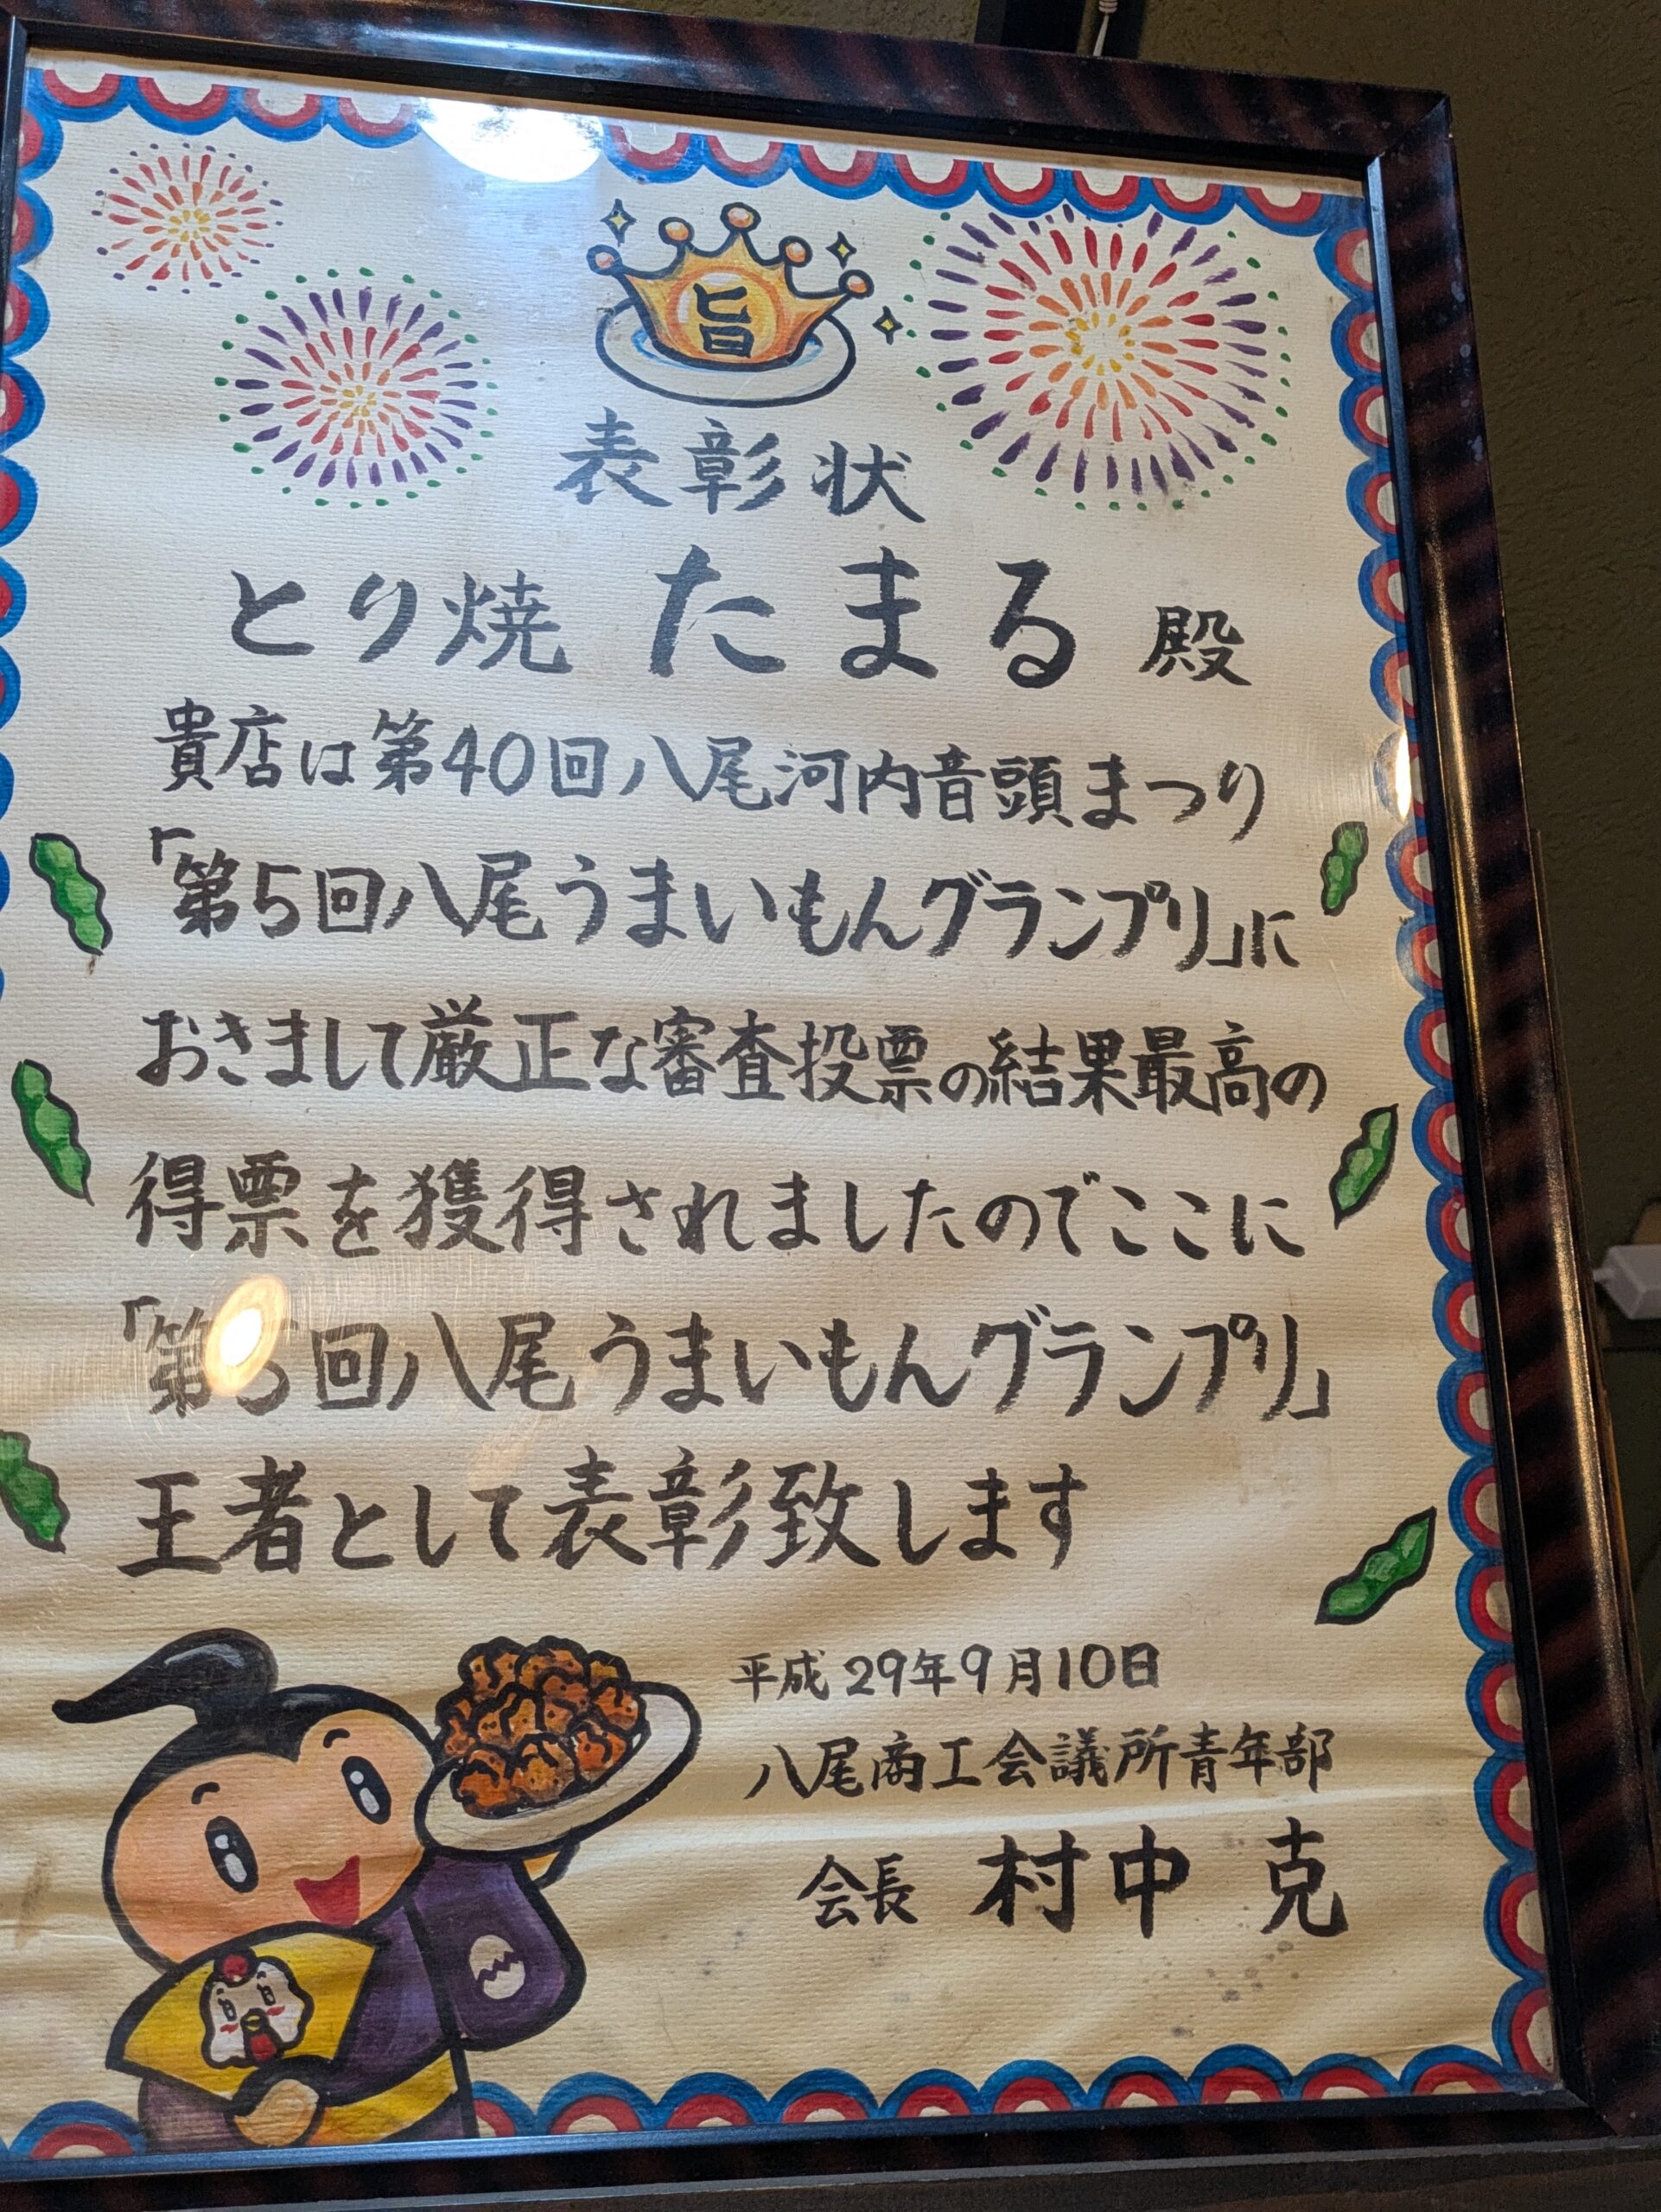 旨
表彰状
とり焼 たまる 殿
貴店は第40回八尾河内音頭まつり
「第5回八尾うまいもんグランプリ」に
おきまして厳正な審査投票の結果最高の
得票を獲得されましたのでここに
「第5回八尾うまいもんグランプリ」
王者として表彰致します
平成29年9月10日
八尾商工会議所青年部
会長 村中 克